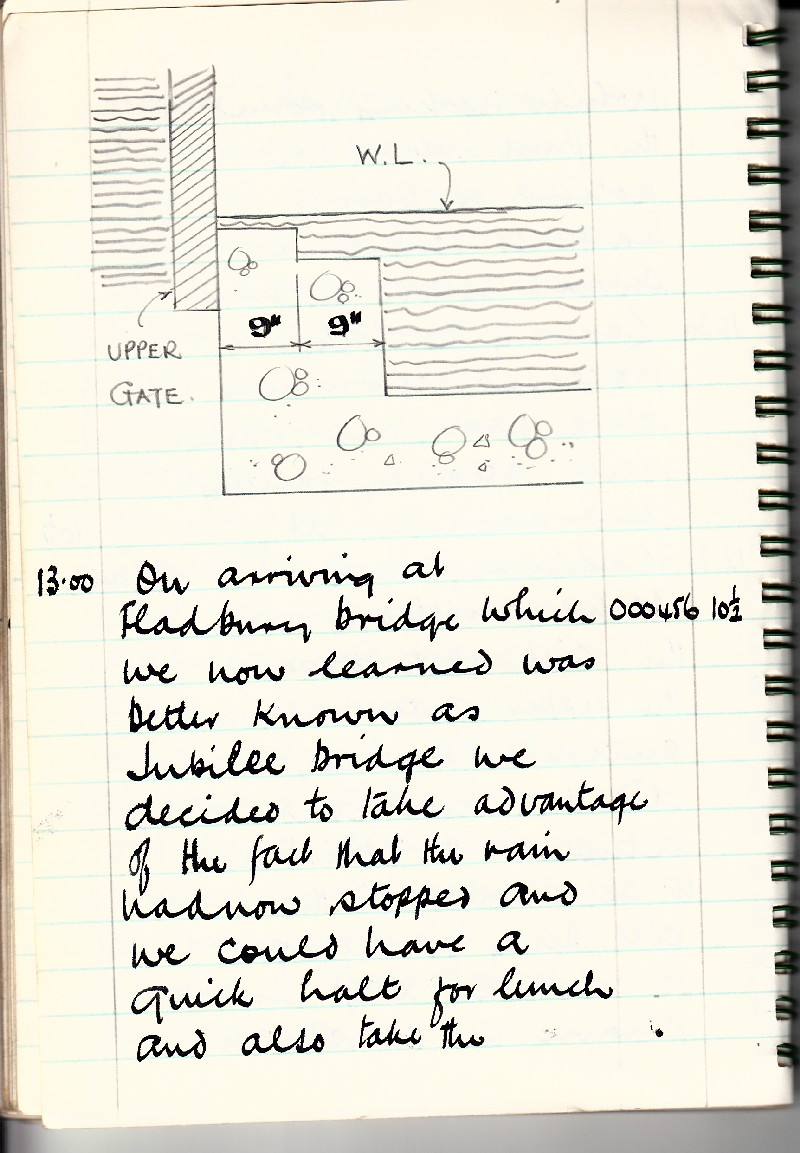 W.L.
9" 9"
UPPER
GATE.
13.00 On arriving at
Fladbury bridge which 000456 10½
we now learned was
better known as
Jubilee bridge we
decided to take advantage
of the fact that the rain
had now stopped and
we could have a
quick halt for lunch
and also take the